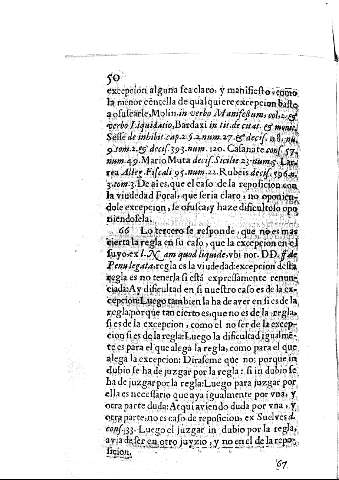 50
excepcion alguna sea claro, y manifiesto, como
la menor centella de qualquiere excepcion baste
a ofuscarle, Molin. in verbo Manifestum, vol. 2. &
verbo Liquidatio, Bardaxi in tit. de cuat. & monet.
Sesse de inhibit. cap. 2. §. 2. num. 27. & decis. nu.
9. tom. 2. & decis. 393. num. 120. Casanate cons. 57.
num. 49. Mario Muta decis. Sicilie 23. num. 5. Lar
rea Alleg. Fiscali 95. num. 22. Rubeis decis. 596. n.
3. tom. 3. De aì es, que el caso de la reposicion con
la viudedad Foral, que seria claro, no oponien-
dole excepcion, le ofusca y haze dificultoso opo
niendosela.
66 Lo tercero se responde, que no es mas
cierta la regla en su caso, que la excepcion en el
suyo, ex l. Nam quod liquide, vbi nor. DD. ff. de
Penu legata. regla es la viudedad: excepcion desta
regla es no tenerla si està expressamente renun-
ciada: Ay dificultad en si nuestro caso es de la ex-
cepcion: Luego tambien la ha de aver en si es de la
regla, porque tan cierto es, que no es de la regla,
si es de la excepcion, como el no ser de la excep-
cion si es de la regla: Luego la dificultad igualmē-
te es para el que alega la regla, como para el que
alega la excepcion: Diraseme que no; porque in
dubio se ha de juzgar por la regla: si in dubio se
ha de juzgar por la regla: Luego para juzgar por
ella es necessario que aya igualmente por vna, y
otra parte duda: Atqui aviendo duda por vna, y
otra parte, no es caso de reposicion, ex Suelves d.
cons. 33. Luego el juzgar in dubio por la regla,
avia de ser en otro juyzio, y no en el de la repo-
sicion.
67